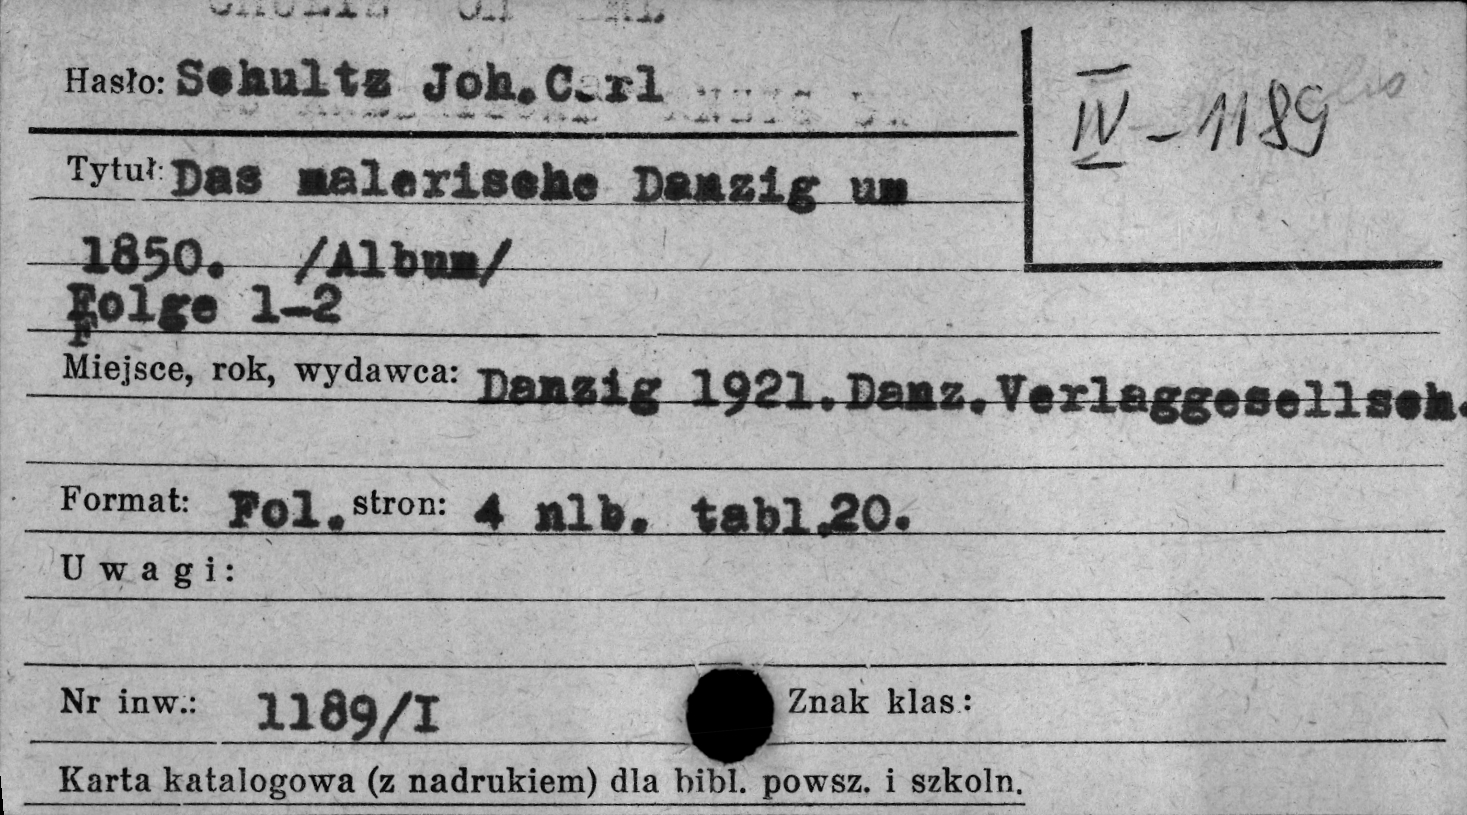 Hasło: Schultz Joh. Carl
IV - 1189
Tytuł: Das malerische Danzig um
1850. /Album/
Folge 1-2
Miejsce, rok, wydawca: Danzig 1921. Danz. Verlaggesellsch.
Format: Fol. stron: 4 nlb. tabl.20.
Uwagi:
Nr inw.: 1189/I Znak klas.:
Karta katalogowa (z nadrukiem) dla bibl. powsz. i szkoln.